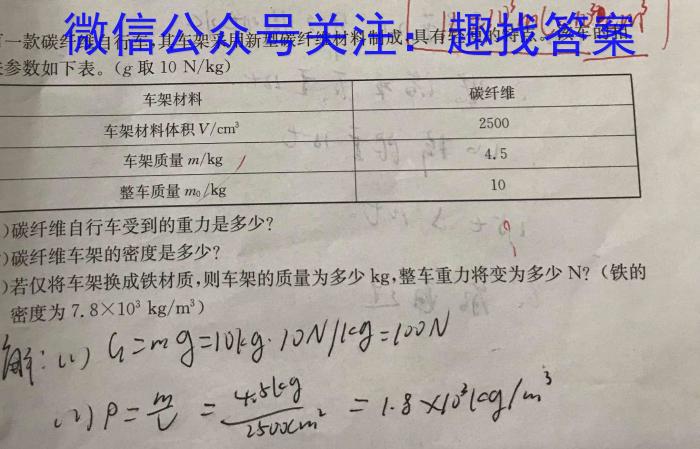 微信公众号关注：趣找答案
一款碳纤维自行车,其车架采用新型碳纤维材料制成,具有
参数如下表。(g 取 10 N/kg)
车架材料 碳纤维
车架材料体积 V/cm³ 2500
车架质量 m/kg 4.5
整车质量 m₀/kg 10
)碳纤维自行车受到的重力是多少?
)碳纤维车架的密度是多少?
)若仅将车架换成铁材质,则车架的质量为多少 kg,整车重力将变为多少 N? (铁的
密度为 7.8×10³ kg/m³)
解：(1) G=mg=10kg·10N/kg=100N
(2) ρ=m/V=4.5kg/2500cm²=1.8×10³kg/m³